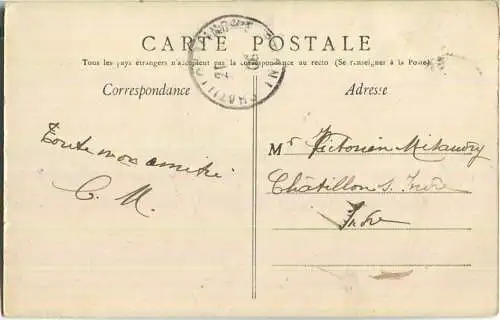 CARTE POSTALE
Tous les pays étrangers n'acceptent pas la correspondance au recto (Se renseigner à la Poste)
Correspondance
Adresse
Toute mon amitié
C. M.
Mr Victorien
Châtillon s. Indre
Indre